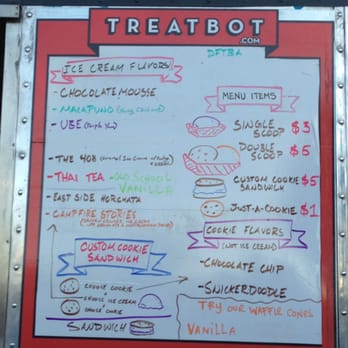 TREATBOT
.COM
DFTBA
ICE CREAM FLAVORS
- CHOCOLATE MOUSSE
- MACAPUNO
- UBE (Purple Yam)
- THE 408
- THAI TEA - OLD SCHOOL
VANILLA
- EAST SIDE HORCHATA
- CAMPFIRE STORIES
CUSTOM COOKIE
SANDWICH
CHOOSE COOKIE
+
CHOOSE ICE CREAM
+
CHOOSE COOKIE
SANDWICH
MENU ITEMS
SINGLE
SCOOP $3
DOUBLE
SCOOP $5
CUSTOM COOKIE
SANDWICH $5
JUST-A-COOKIE $1
COOKIE FLAVORS
(NOT ICE CREAM)
- CHOCOLATE CHIP
- SNICKERDOODLE
TRY OUR WAFFLE CONES
VANILLA